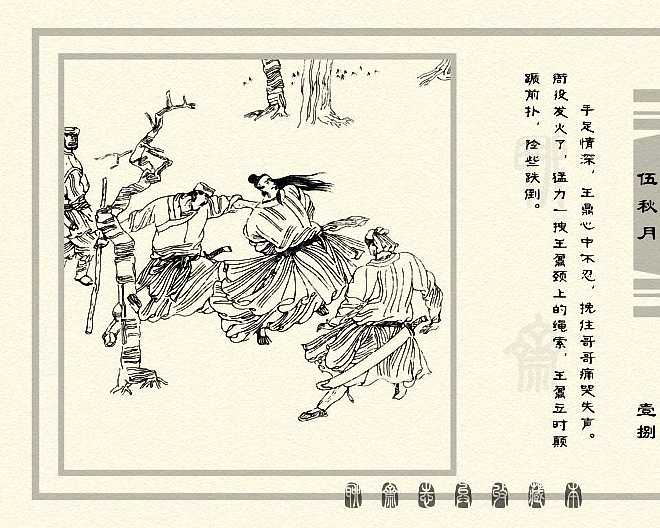 手足情深，王鼎心中不忍，挽住哥哥痛哭失声。
衙役发火了，猛力一拽王鼐颈上的绳索，王鼐立时颠
踬前扑，险些跌倒。
伍秋月
壹捌
聊斋志异收藏本